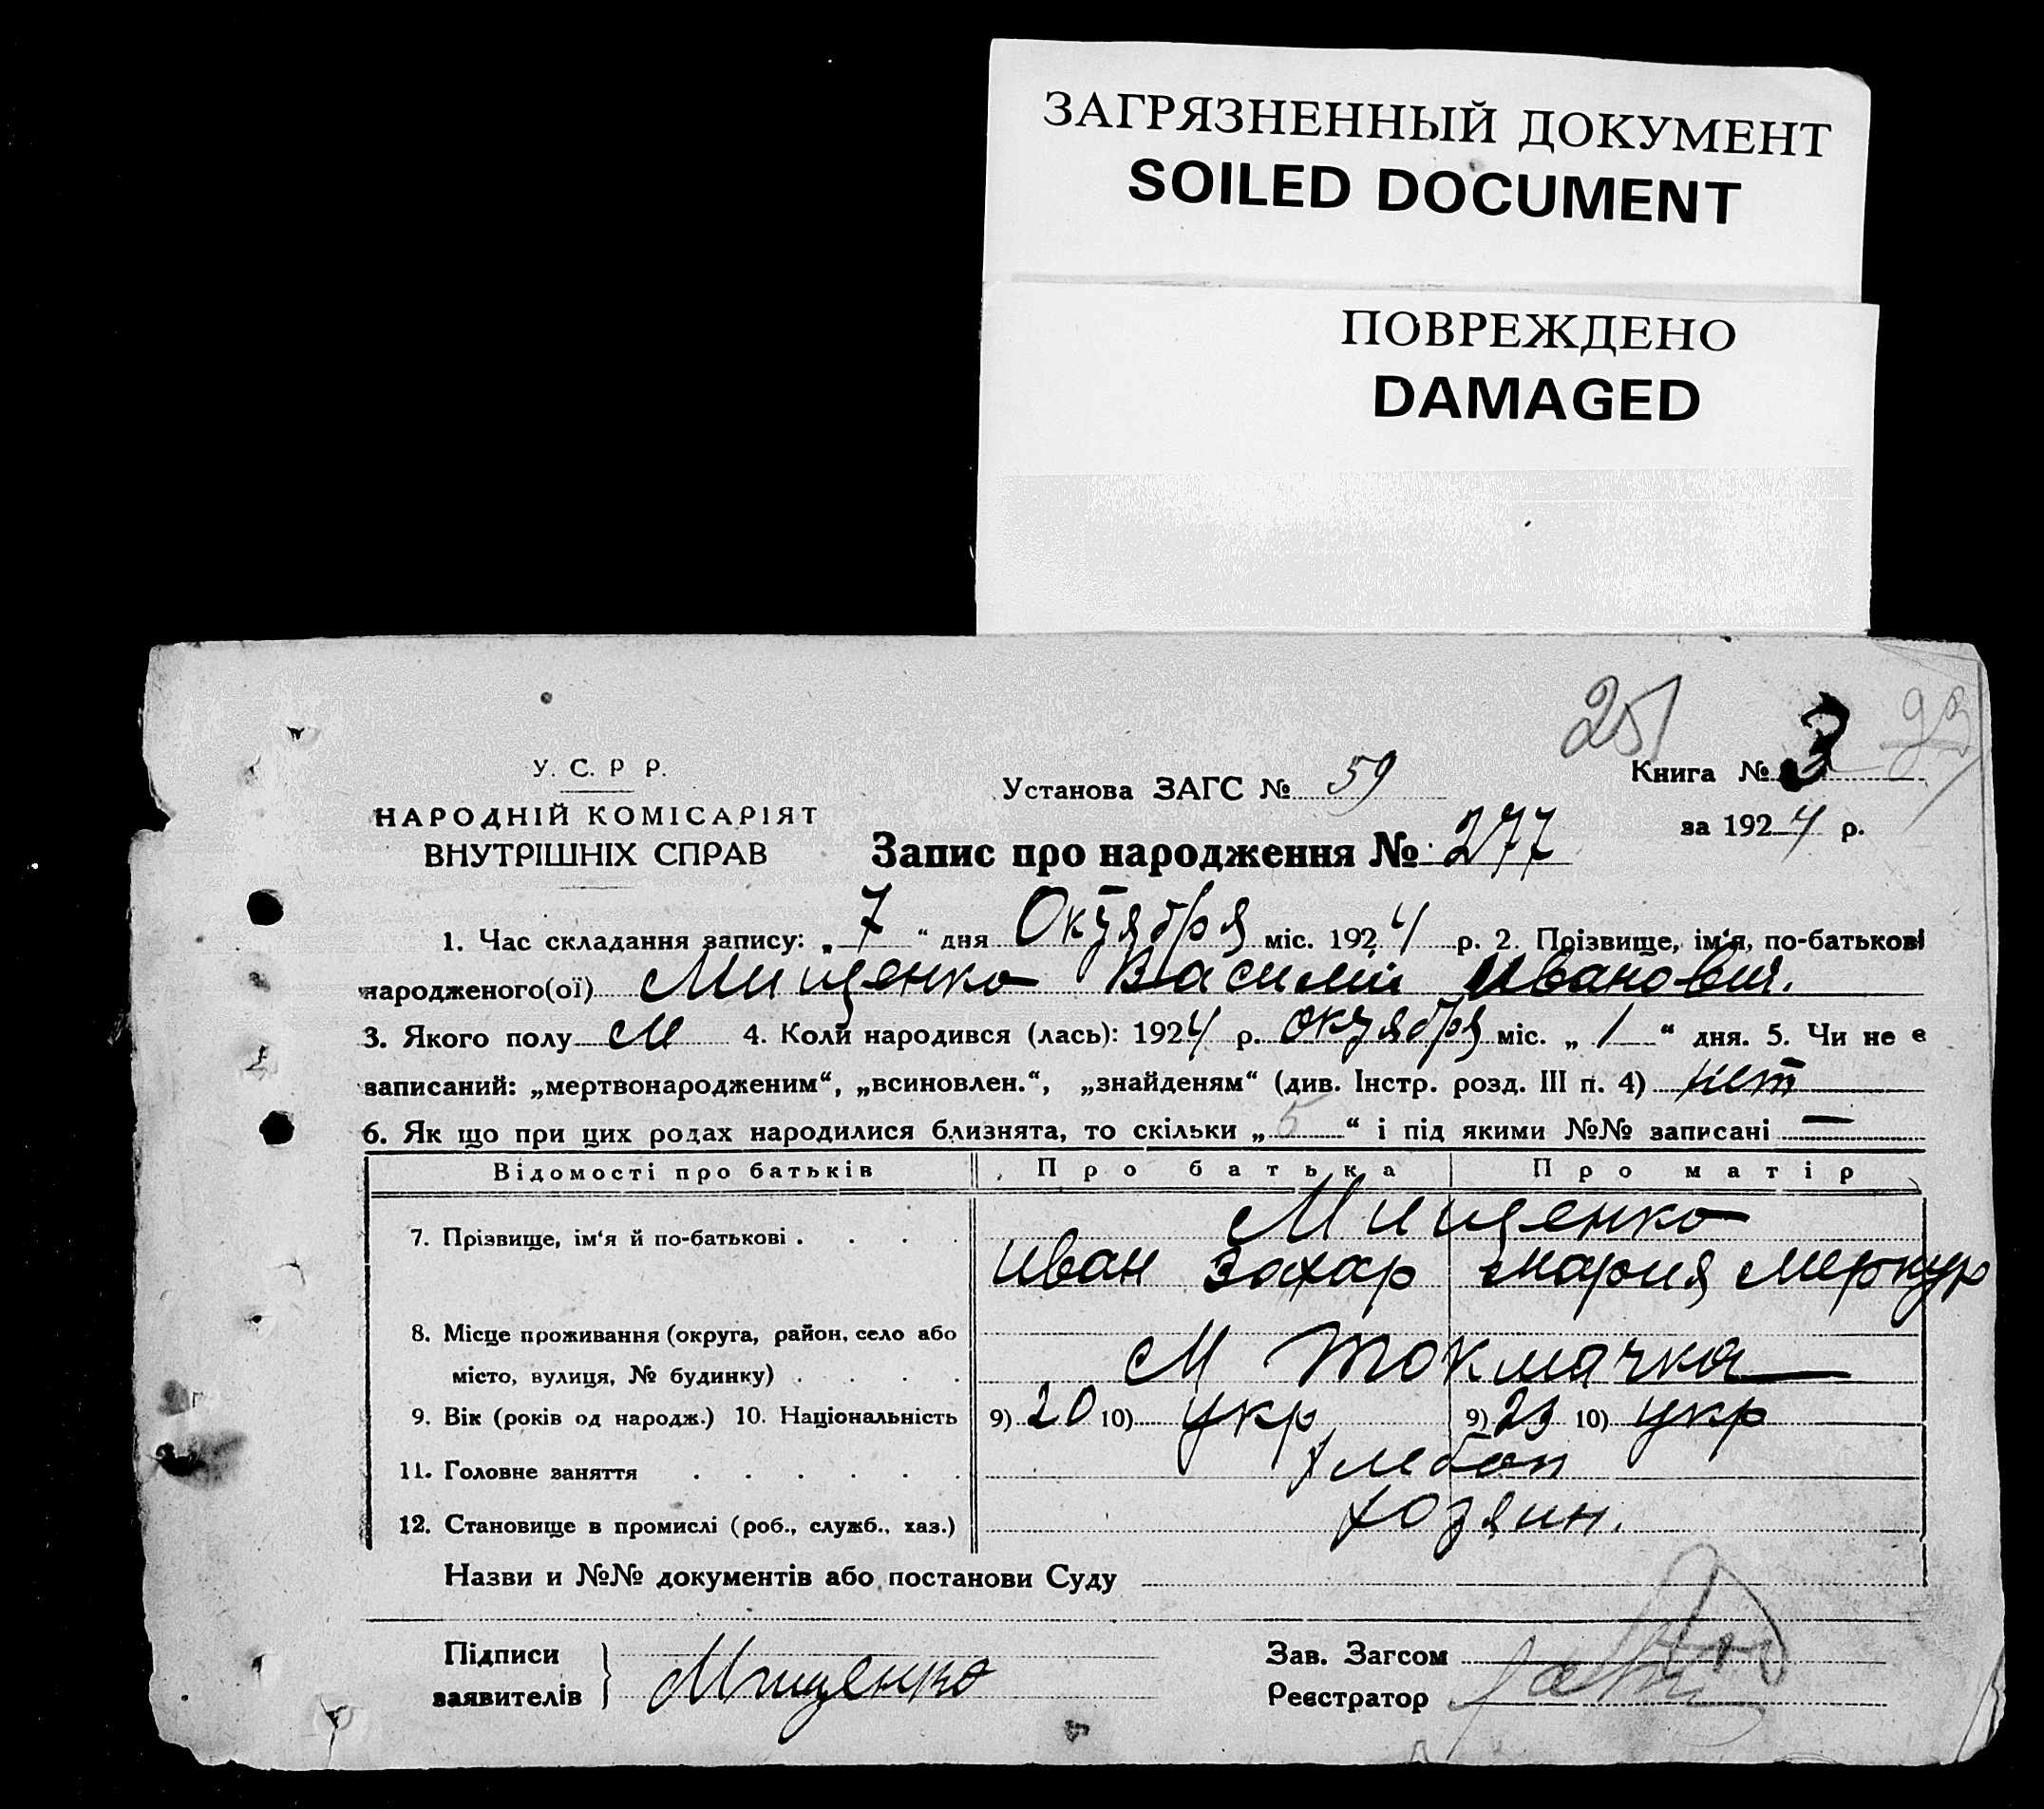 ЗАГРЯЗНЕННЫЙ ДОКУМЕНТ
SOILED DOCUMENT
ПОВРЕЖДЕНО
DAMAGED
251
У. С. Р Р.
Установа ЗАГС № 59
Книга № 3
НАРОДНІЙ КОМІСАРІЯТ
за 1924 р.
ВНУТРІШНІХ СПРАВ
Запис про народження № 277
1. Час складання запису: „ 7 “ дня Октября міс. 1924 р. 2. Прізвище, ім‘я, по-батькові
народженого(ої) Мищенко Василий Иванович.
3. Якого полу М 4. Коли народився (лась): 1924 р. октября міс. „ 1 “ дня. 5. Чи не є
записаний: „мертвонародженим“, „всиновлен.“, „знайденям“ (див. Інстр. розд. III п. 4) нет
6. Як що при цих родах народилися близнята, то скільки „ 5 “ і під якими №№ записані —
Відомості про батьків Про батька Про матір
Мищенко
7. Прізвище, ім‘я й по-батькові . . . .
Иван Захар Мария Меркур
8. Місце проживання (округа, район, село або
М Токмачка
місто, вулиця, № будинку) . . . .
9. Вік (років од народж.) 10. Національність 9) 20 10) укр 9) 23 10) укр
11. Головне заняття . . . . . . Хлебоп
12. Становище в промислі (роб., служб., хаз.) Хозяин.
Назви и №№ документів або постанови Суду
Підписи
заявителів Мищенко
Зав. Загсом
Реєстратор